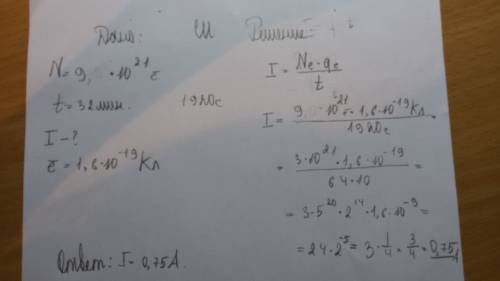 Дано: СИ Решение:
N = 9 · 10²¹ ē
t = 32 мин. 1920с
I - ?
ē = 1,6 · 10⁻¹⁹ Кл
I = Nē · qē / t
I = 9 · 10²¹ · 1,6 · 10⁻¹⁹ Кл / 1920с =
= 3 · 10²¹ · 1,6 · 10⁻¹⁹ / 64 · 10 =
= 3 · 5²⁰ · 2¹⁴ · 1,6 · 10⁻⁹ =
= 24 · 2⁻⁵ = 3 · 1/4 = 3/4 = 0,75А
Ответ: I - 0,75А.